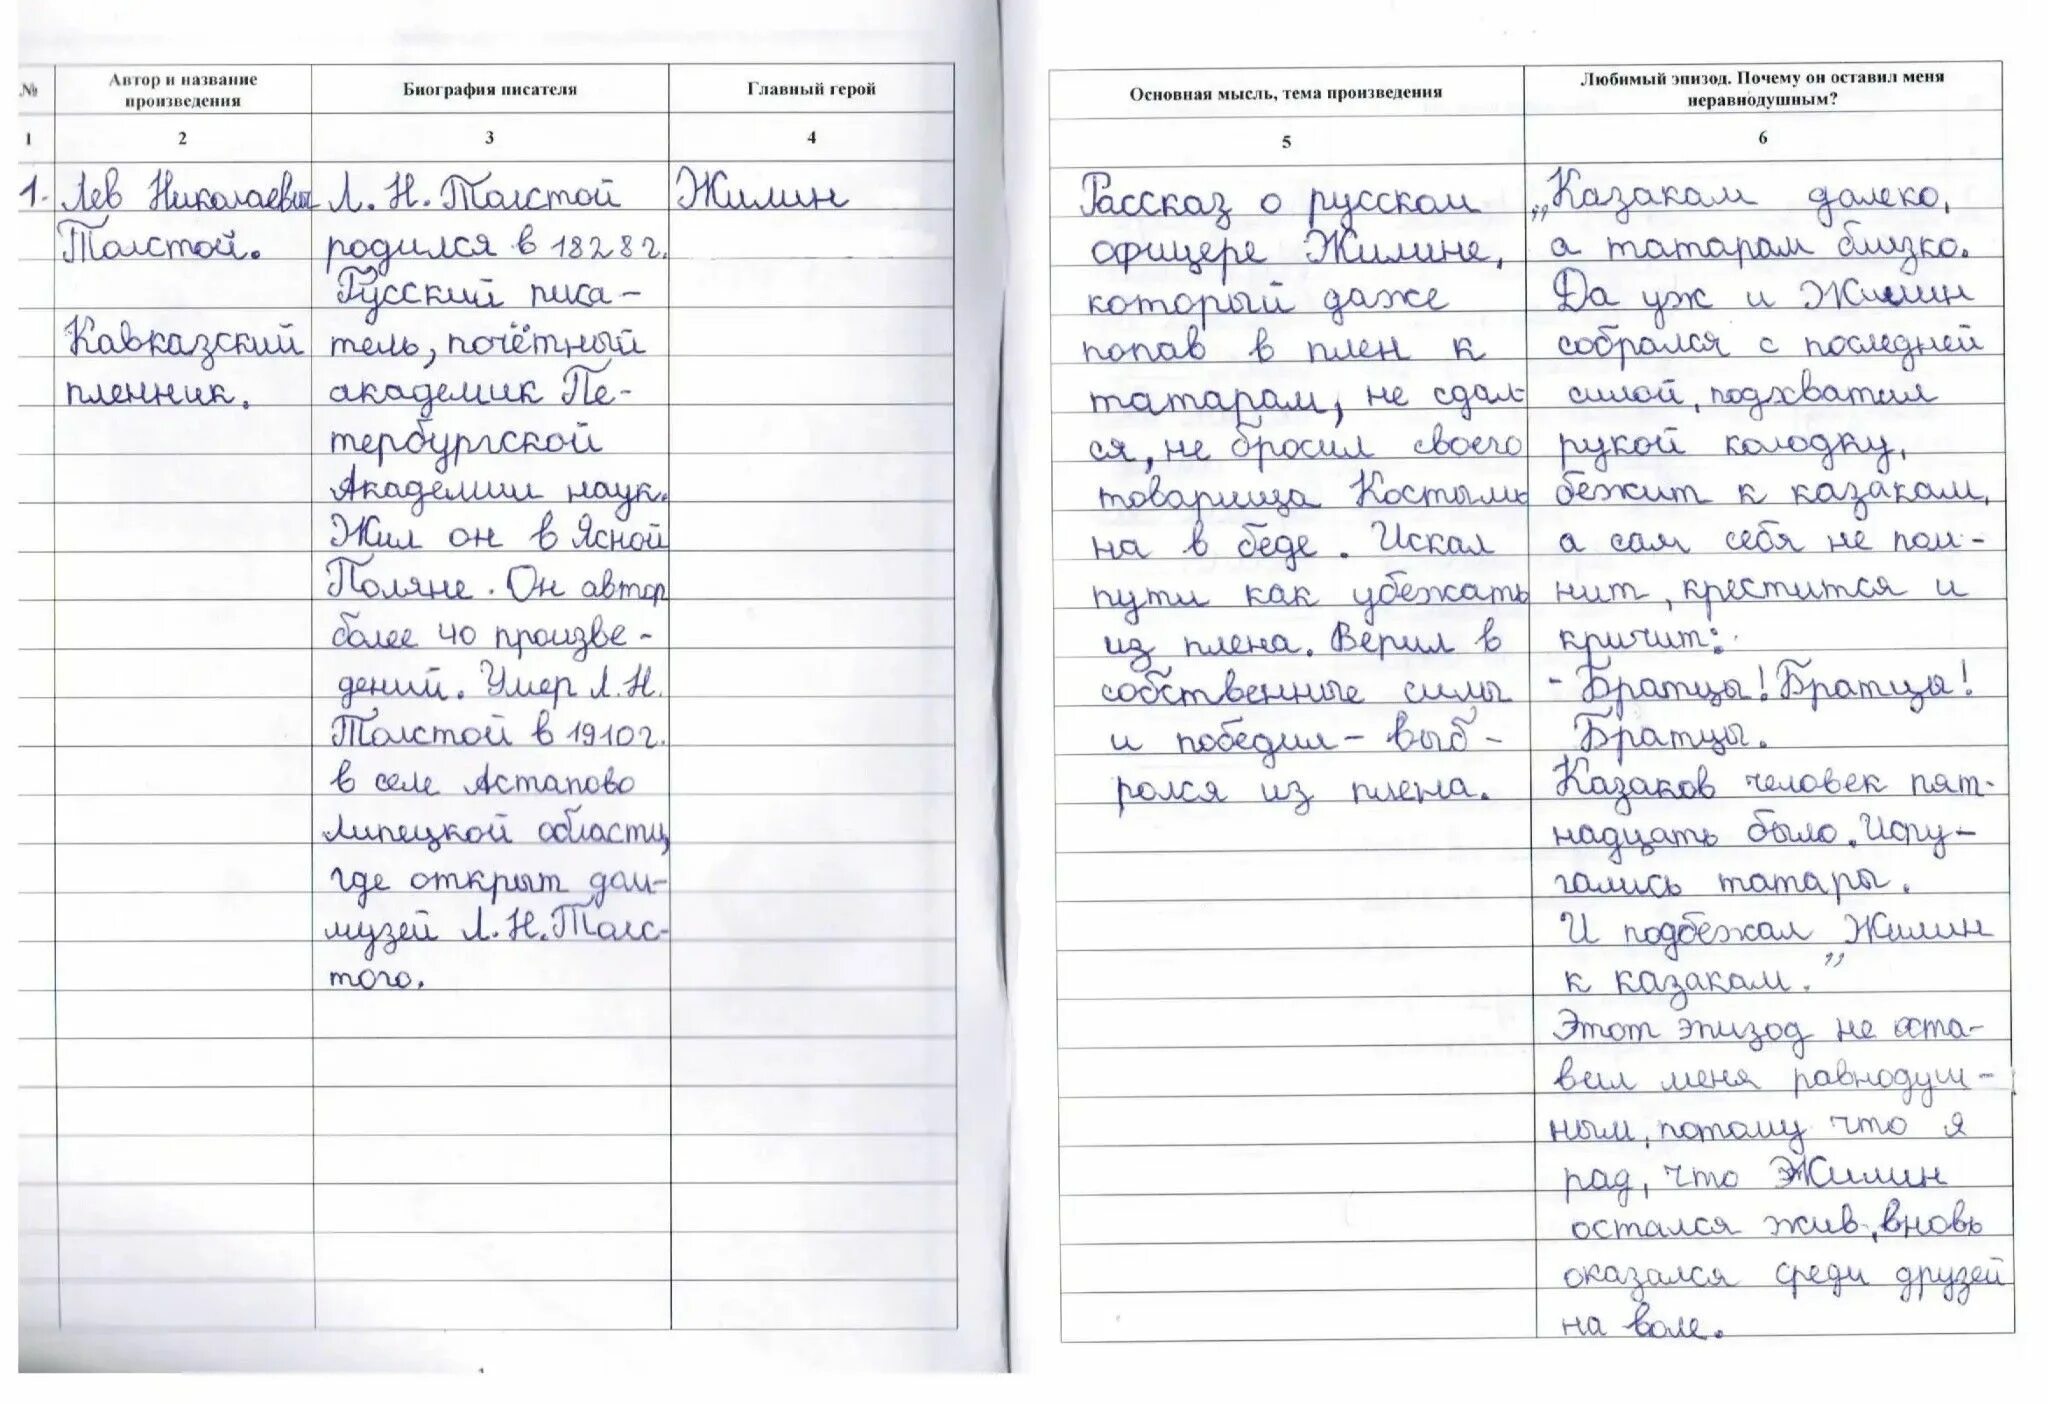 №
Автор и название
произведения
Биография писателя
Главный герой
1
2
3
4
1. Лев Николаевич
Толстой.
Кавказский
пленник.
Л. Н. Толстой
родился в 1828 г.
Русский писа-
тель, почётный
академик Пе-
тербургской
Академии наук.
Жил он в Ясной
Поляне. Он автор
более 40 произве-
дений. Умер Л.Н.
Толстой в 1910 г.
в селе Астапово
Липецкой области,
где открыт дом-
музей Л. Н. Толс-
того.
Жилин
Основная мысль, тема произведения
Любимый эпизод. Почему он оставил меня
неравнодушным?
5
6
Рассказ о русском
офицере Жилине,
который даже
попав в плен к
татарам, не сдал-
ся, не бросил своего
товарища Костыли
на в беде. Искал
пути как убежать
из плена. Верил в
собственные силы
и победил - выб-
рался из плена.
„Казакам далеко,
а татарам близко.
Да уж и Жилин
собрался с последней
силой, подхватил
рукой колодку,
бежит к казакам,
а сам себя не пом-
нит, крестится и
кричит:
- Братцы! Братцы!
Братцы.
Казаков человек пят-
надцать было. Испу-
гались татары.
И подбежал Жилин
к казакам.”
Этот эпизод не оста-
вил меня равнодуш-
ным, потому что я
рад, что Жилин
остался жив, вновь
оказался среди друзей
на воле.